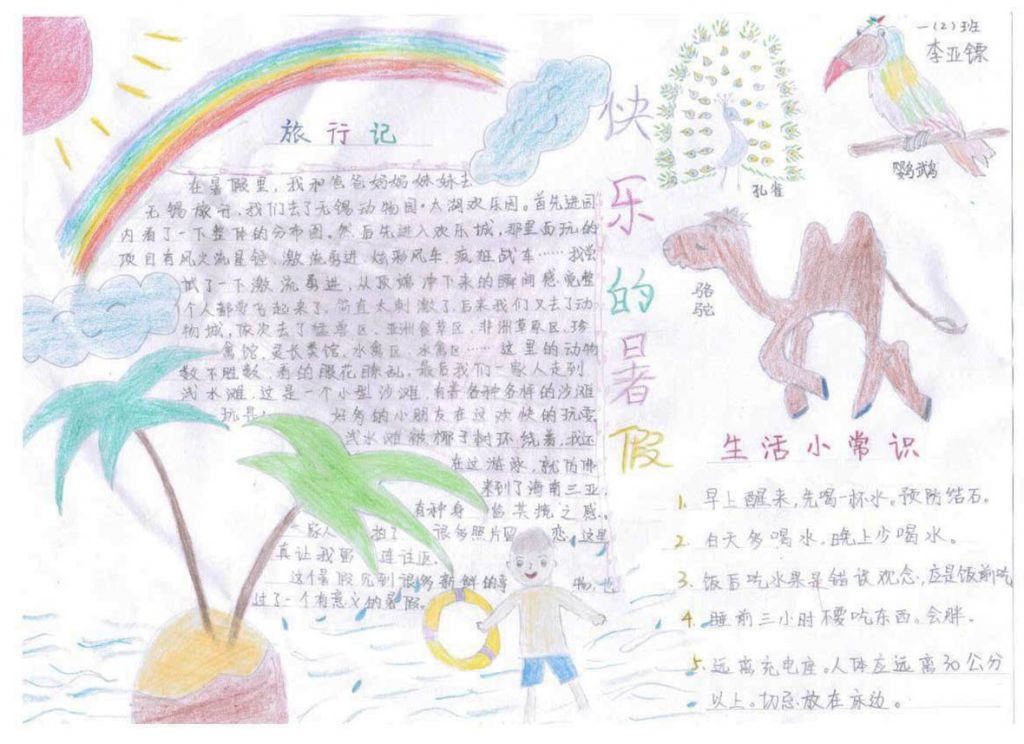 一(2)班
李亚镖
快乐的暑假
孔雀
鹦鹉
骆驼
旅行记
在暑假里，我和爸爸妈妈妹妹去
无锡旅行，我们去了无锡动物园·太湖欢乐园。首先进园
内看了一下整体的分布图。然后先进入欢乐城，那里面玩的
项目有风火流星轮、激流勇进、炫彩风车、疯狂战车……我尝
试了一下激流勇进，从顶端冲下来的瞬间感觉整
个人都要飞起来了，简直太刺激了。后来我们又去了动
物城，依次去了猛兽区、亚洲食草区、非洲草原区、珍
禽馆、灵长类馆、水禽区、冰禽区……这里的动物
数不胜数，看的眼花瞭乱。最后我们一家人走到
浅水滩，这是一个小型沙滩，有着各种各样的沙滩
玩具，好多的小朋友在这欢快的玩耍
浅水滩被椰子树环绕着，我还
在这游泳，就仿佛
来到了海南三亚，
有种身临其境之感。
一家人拍了很多照片留恋，这里
真让我留连往返。
这个暑假见到很多新鲜的事物，也
过了一个有意义的暑假。
生活小常识
1. 早上醒来，先喝一杯水。预防结石。
2. 白天多喝水，晚上少喝水。
3. 饭后吃水果是错误观念，应是饭前吃
4. 睡前三小时不要吃东西。会胖。
5. 远离充电座。人体应远离30公分
以上。切忌放在床边。